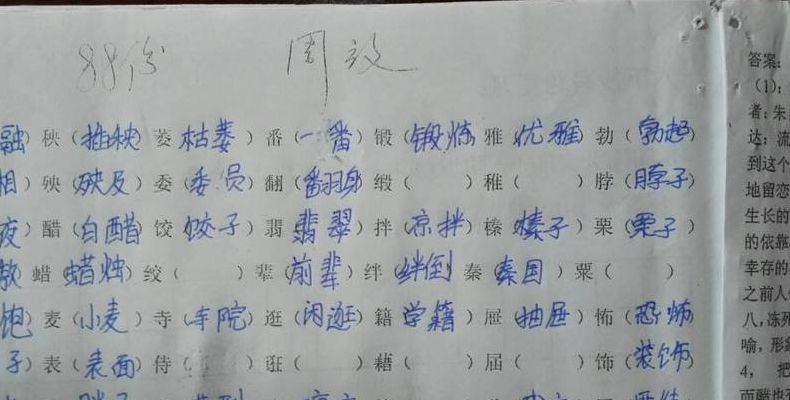 88份 周设
融）秧（插秧 萎 枯萎）番（一番）锻（锻炼 雅 优雅 勃（勃起）
相）殃（殃及）委（委员 翻（翻身 缎（ ）稚（ ）脖（脖子）
夜）醋（白醋）饺 饺子）翡 翡翠 拌（凉拌 榛（榛子）栗（栗子）
蜡 蜡烛 绞（ ）辈（前辈）绊（绊倒 秦（秦国）粟（ ）
饱）麦（小麦）寺（寺院）逛（闲逛）籍（学籍）屉（抽屉）怖（恐怖
子）表（表面）侍（ ）诳（ ）藉（ ）届（ ）饰（装饰）
答案：
（1）：
者：朱
达：流
到这个
地留恋
生长的
的依靠
幸存的
之前人
八，冻死
喻，形象
4， 把
而醋也